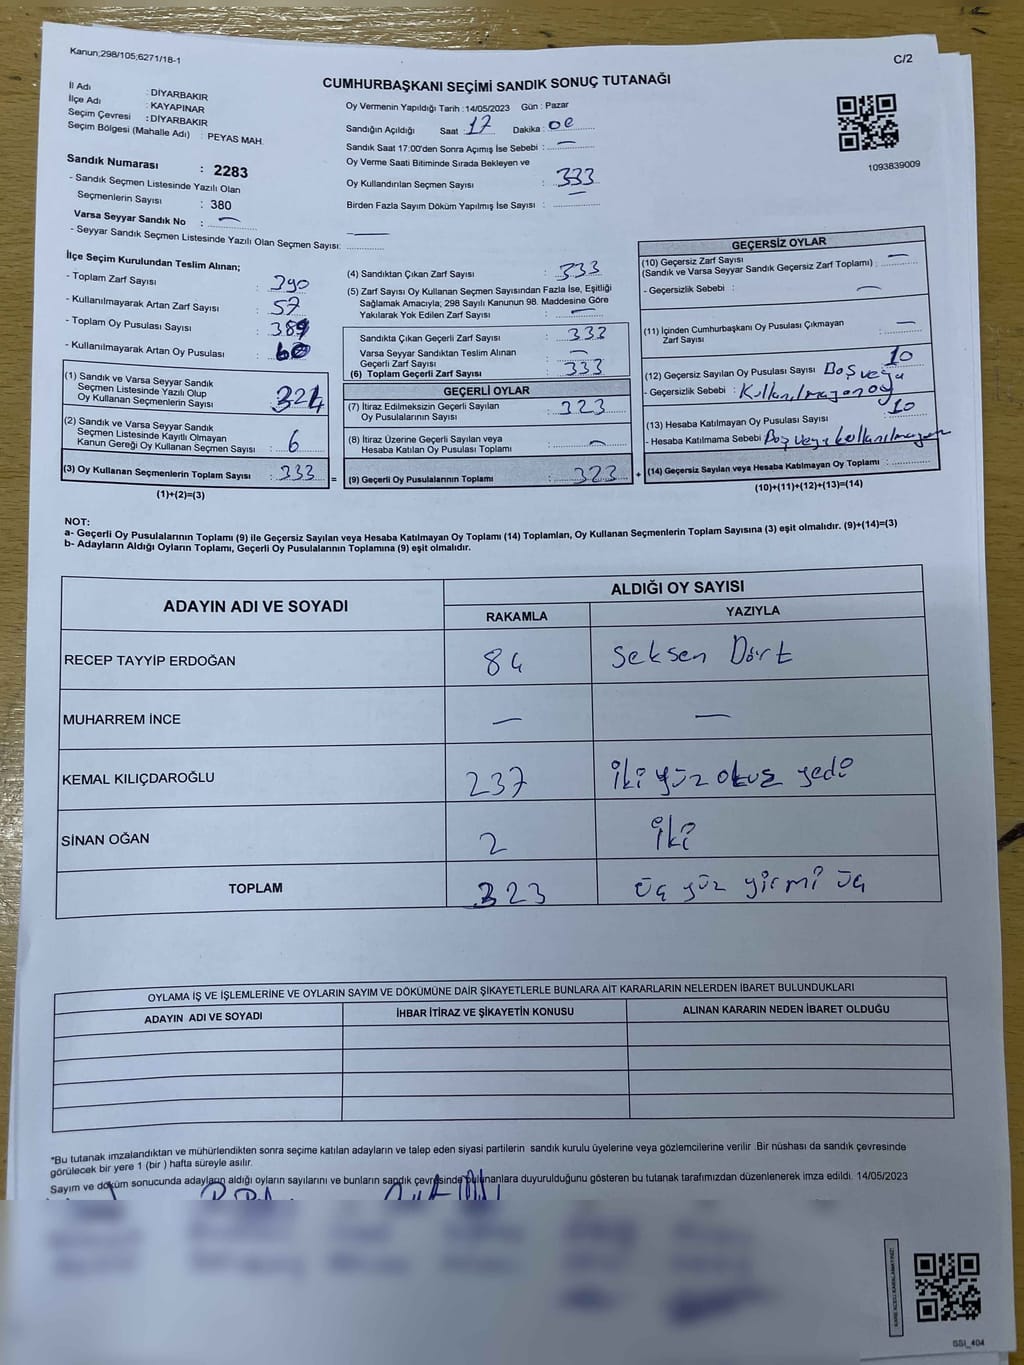 Kanun;298/105;6271/18-1
C/2
CUMHURBAŞKANI SEÇİMİ SANDIK SONUÇ TUTANAĞI
İl Adı : DİYARBAKIR
İlçe Adı : KAYAPINAR
Seçim Çevresi : DİYARBAKIR
Seçim Bölgesi (Mahalle Adı) : PEYAS MAH.
Sandık Numarası : 2283
- Sandık Seçmen Listesinde Yazılı Olan
Seçmenlerin Sayısı : 380
Varsa Seyyar Sandık No : —
- Seyyar Sandık Seçmen Listesinde Yazılı Olan Seçmen Sayısı: —
Oy Vermenin Yapıldığı Tarih : 14/05/2023 Gün : Pazar
Sandığın Açıldığı Saat : 17 Dakika : 00
Sandık Saat 17:00'den Sonra Açımış İse Sebebi : —
Oy Verme Saati Bitiminde Sırada Bekleyen ve
Oy Kullandırılan Seçmen Sayısı : 333
Birden Fazla Sayım Döküm Yapılmış İse Sayısı :
1093839009
İlçe Seçim Kurulundan Teslim Alınan;
- Toplam Zarf Sayısı : 390
- Kullanılmayarak Artan Zarf Sayısı : 57
- Toplam Oy Pusulası Sayısı : 389
- Kullanılmayarak Artan Oy Pusulası :
(1) Sandık ve Varsa Seyyar Sandık
Seçmen Listesinde Yazılı Olup
Oy Kullanan Seçmenlerin Sayısı :
(2) Sandık ve Varsa Seyyar Sandık
Seçmen Listesinde Kayıtlı Olmayan
Kanun Gereği Oy Kullanan Seçmen Sayısı : 6
(3) Oy Kullanan Seçmenlerin Toplam Sayısı : 333 =
(1)+(2)=(3)
(4) Sandıktan Çıkan Zarf Sayısı : 333
(5) Zarf Sayısı Oy Kullanan Seçmen Sayısından Fazla İse, Eşitliği
Sağlamak Amacıyla; 298 Sayılı Kanunun 98. Maddesine Göre
Yakılarak Yok Edilen Zarf Sayısı : —
Sandıkta Çıkan Geçerli Zarf Sayısı : 333
Varsa Seyyar Sandıktan Teslim Alınan
Geçerli Zarf Sayısı : —
(6) Toplam Geçerli Zarf Sayısı : 333
GEÇERLİ OYLAR
(7) İtiraz Edilmeksizin Geçerli Sayılan
Oy Pusulalarının Sayısı : 323
(8) İtiraz Üzerine Geçerli Sayılan veya
Hesaba Katılan Oy Pusulası Toplamı : —
(9) Geçerli Oy Pusulalarının Toplamı : 323 +
GEÇERSİZ OYLAR
(10) Geçersiz Zarf Sayısı
(Sandık ve Varsa Seyyar Sandık Geçersiz Zarf Toplamı) : —
- Geçersizlik Sebebi : —
(11) İçinden Cumhurbaşkanı Oy Pusulası Çıkmayan
Zarf Sayısı : —
(12) Geçersiz Sayılan Oy Pusulası Sayısı : 10
- Geçersizlik Sebebi : Boş veya Kullanılmayan oy
(13) Hesaba Katılmayan Oy Pusulası Sayısı : 10
- Hesaba Katılmama Sebebi : Boş veya kullanılmayan
(14) Geçersiz Sayılan veya Hesaba Katılmayan Oy Toplamı :
(10)+(11)+(12)+(13)=(14)
NOT:
a- Geçerli Oy Pusulalarının Toplamı (9) ile Geçersiz Sayılan veya Hesaba Katılmayan Oy Toplamı (14) Toplamları, Oy Kullanan Seçmenlerin Toplam Sayısına (3) eşit olmalıdır. (9)+(14)=(3)
b- Adayların Aldığı Oyların Toplamı, Geçerli Oy Pusulalarının Toplamına (9) eşit olmalıdır.
ADAYIN ADI VE SOYADI
ALDIĞI OY SAYISI
RAKAMLA YAZIYLA
RECEP TAYYİP ERDOĞAN 84 Seksen Dört
MUHARREM İNCE — —
KEMAL KILIÇDAROĞLU 237 İki yüz otuz yedi
SİNAN OĞAN 2 İki
TOPLAM 323 Üç yüz yirmi üç
OYLAMA İŞ VE İŞLEMLERİNE VE OYLARIN SAYIM VE DÖKÜMÜNE DAİR ŞİKAYETLERLE BUNLARA AİT KARARLARIN NELERDEN İBARET BULUNDUKLARI
ADAYIN ADI VE SOYADI İHBAR İTİRAZ VE ŞİKAYETİN KONUSU ALINAN KARARIN NEDEN İBARET OLDUĞU
*Bu tutanak imzalandıktan ve mühürlendikten sonra seçime katılan adayların ve talep eden siyasi partilerin sandık kurulu üyelerine veya gözlemcilerine verilir. Bir nüshası da sandık çevresinde
görülecek bir yere 1 (bir ) hafta süreyle asılır.
Sayım ve döküm sonucunda adayların aldığı oyların sayılarını ve bunların sandık çevresinde bulunanlara duyurulduğunu gösteren bu tutanak tarafımızdan düzenlenerek imza edildi. 14/05/2023
SSI_404